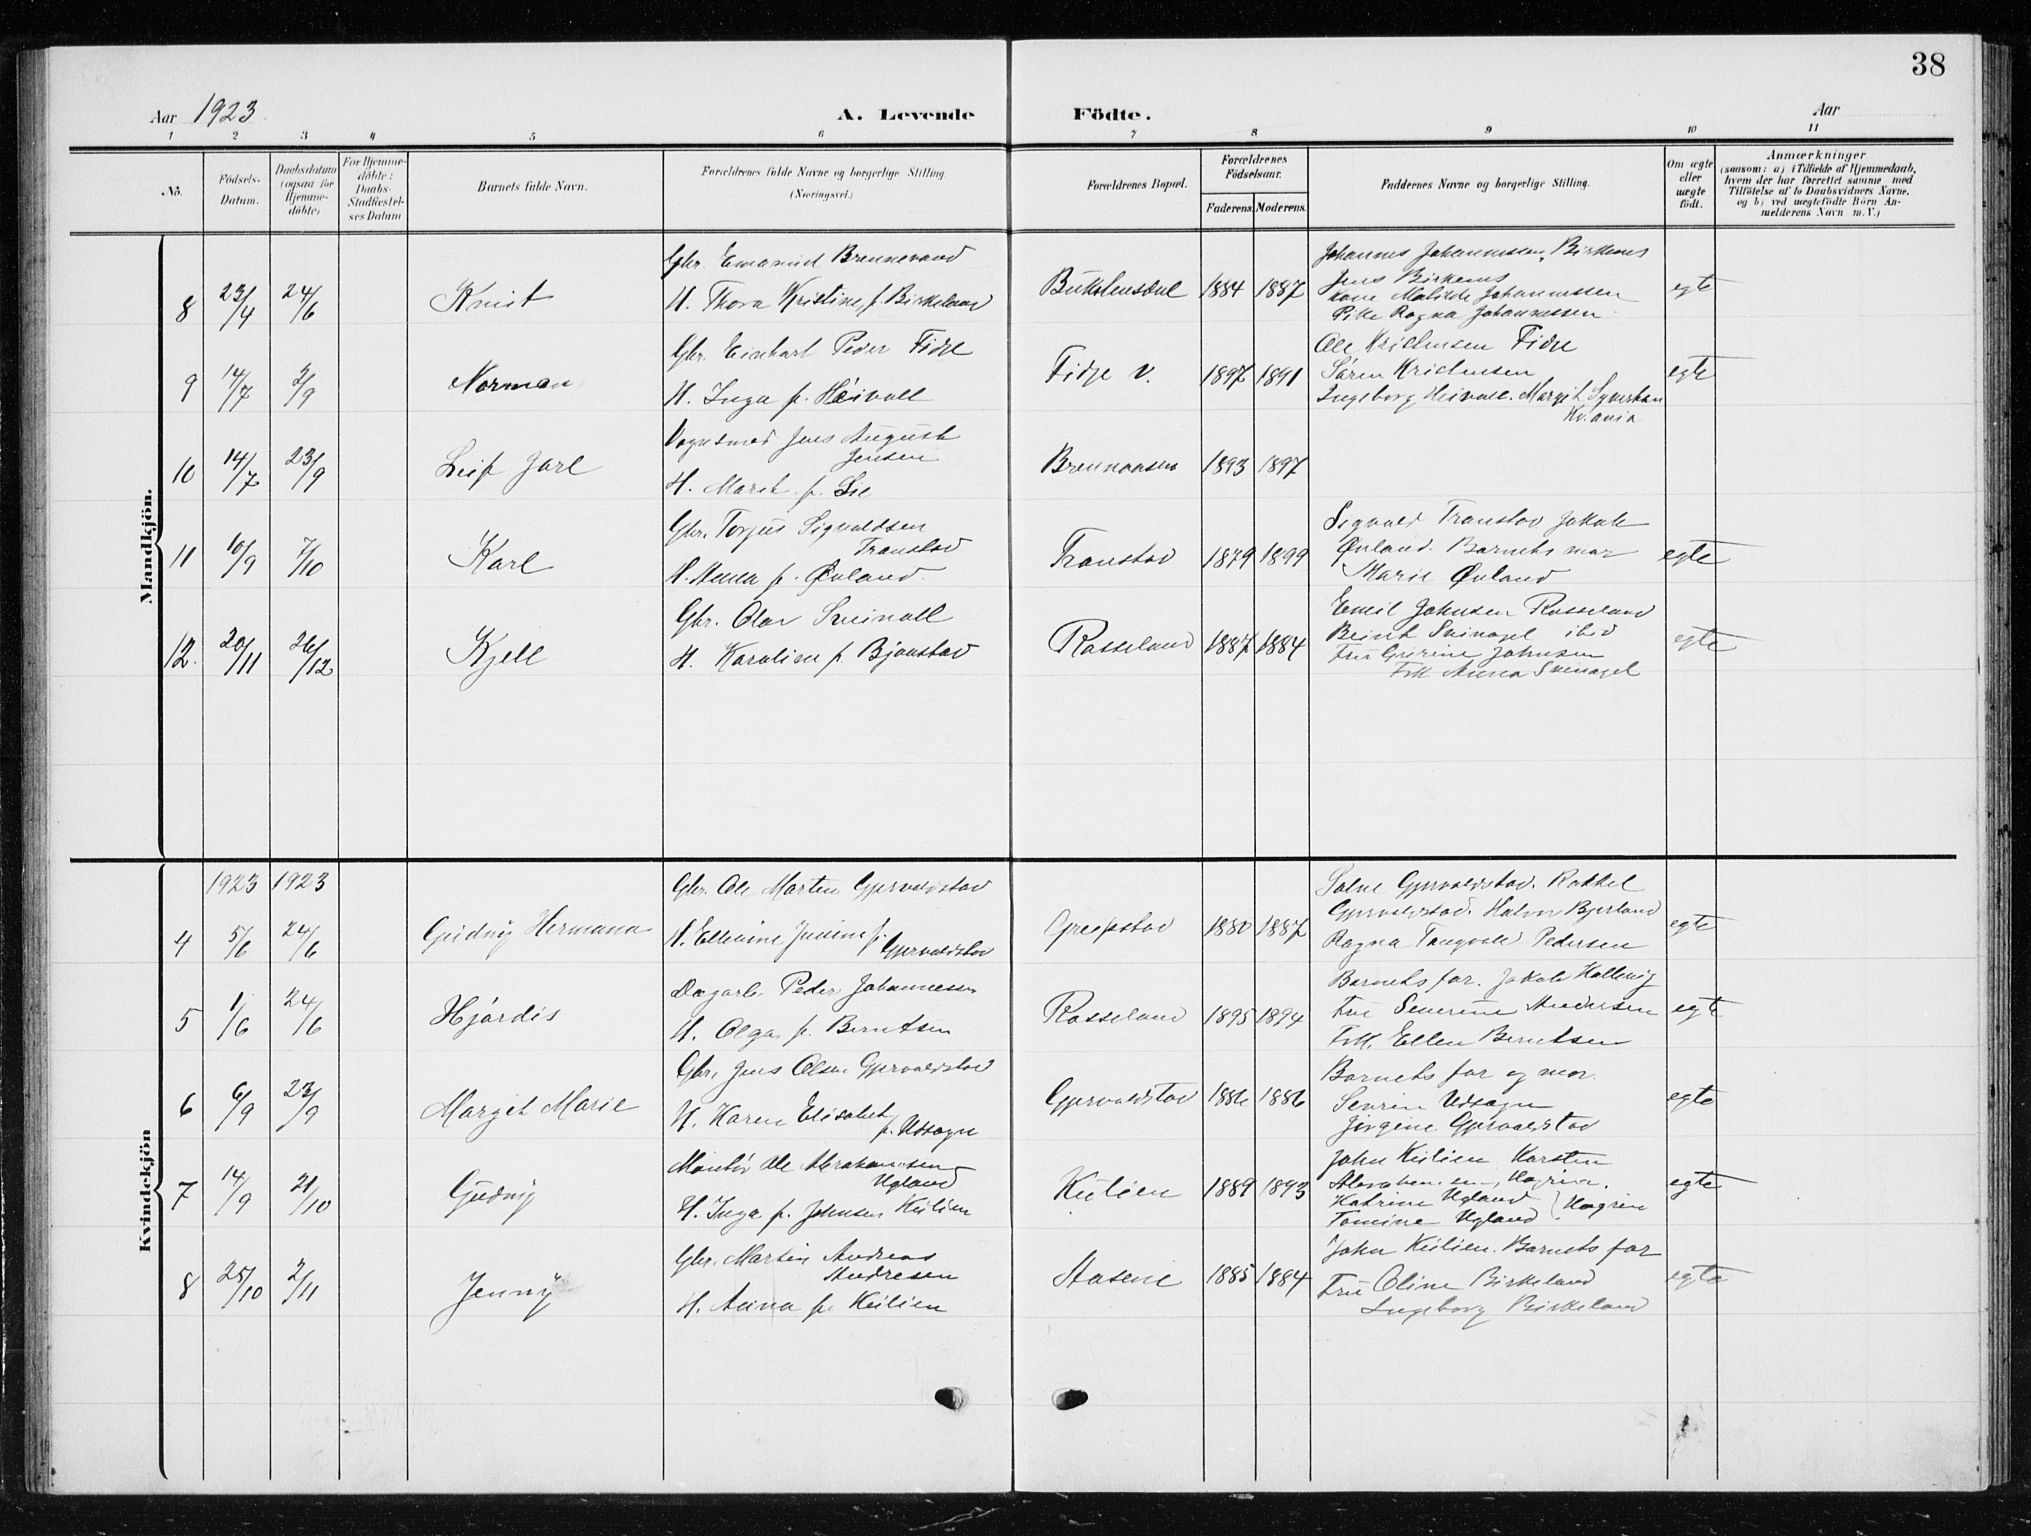 38
Aar 1923
A. Levende Födte.
Aar
1 2 3 4 5 6 7 8 9 10 11
No.
Födsels-Datum.
Daabsdatum (ogsaa for Hjemme-döbte)
For Hjemme-döbte: Daabs-Stadfæstel-ses Datum
Barnets fulde Navn.
Forældrenes fulde Navne og borgerlige Stilling (Næringsvei.)
Forældrenes Bopæl.
Forældrenes Födselsaar.
Faderens. Moderens.
Faddernes Navne og borgerlige Stilling.
Om ægte eller uægte födt.
Anmærkninger
(saasom: a) i Tilfælde af Hjemmedaab,
hvem der har forrettet samme med
Tilföielse af to Daabsvidners Navne,
og b) ved uægtefödte Börn An-
melderens Navn m. V.)
Mandkjön.
8 23/4 24/6 Knut
Gbr. Emanuel Brennevand
H. Thora Kristine f. Birkeland
1884 1887
Johannes Johannessen, Birkenes
Jens Birkenes
Kone Matilde Johannessen
Pike Ragna Johannessen
egte
9 14/7 2/9 Norman
Gbr. Einhart Peder Fidje
H. Inga f. Heivoll
Fidje v. 1897 1891
Ole Kristensen Fidje
Søren Kristensen
Ingeborg Heivoll. Margit
egte
10 14/7 23/9 Leif Jarl
Vognsmed Jens August
Jensen
H. Marit f. Lie
Brennaasen 1893 1897
11 10/9 7/10 Karl
Gbr. Torjus Sigvaldsen
Transtad
H. Anna f. Øvland
Franstad 1879 1899
Sigvald Transtad Jakob
Øvland. Barnets mor
Marie Øvland
egte
12. 20/11 26/12 Kjell
Gbr. Olav
H. Karoline f. Bjønstad
Rosseland 1887 1884
Emil Johnsen Rosseland
Berint Svinagel ibid
Fru Gurine Johnsen
Frk Anna Svinagel
egte
Kvindekjön
1923 1923
4 5/6 24/6 Gudny Hermana
Gbr. Ole Marten Gjervoldstad
H. Ellevine f.
Gjervoldstad
Greipstad 1880 1887
Salve Gjervoldstad. Rakkel
Gjervoldstad. Halvor Bjerland
Ragna Tangvold Pedersen
egte
5 1/6 24/6 Hjørdis
Dagarb. Peder Johannessen
H. Olga f. Berntsen
Rosseland 1895 1894
Barnets far. Jakob Hallevig
Fru Severine Andersen
Frk. Ellen Berntsen
egte
6 6/9 23/9 Margit Marie
Gbr. Jens Olsen Gjervoldstad
H. Karen Elisabet
f. Udsogn
Gjervoldstad 1886 1886
Barnets far og mor.
Sevrin Udsogn
Jørgine Gjervoldstad
egte
7 14/9 21/10 Gudny
Montør Ole Abrahamsen
Ugland
H. Inga f. Johnsen Kulien
Kulien 1889 1893
John Kulien Karsten
Katrine Ugland
Tomine Ugland
egte
8 25/10 2/11 Jenny
Gbr. Martin Andreas
Andresen
H. Anna f. Kulien
Aasene 1885 1884
John Kulien. Barnets far
Fru Oline Birkeland
Ingeborg Birkeland
egte